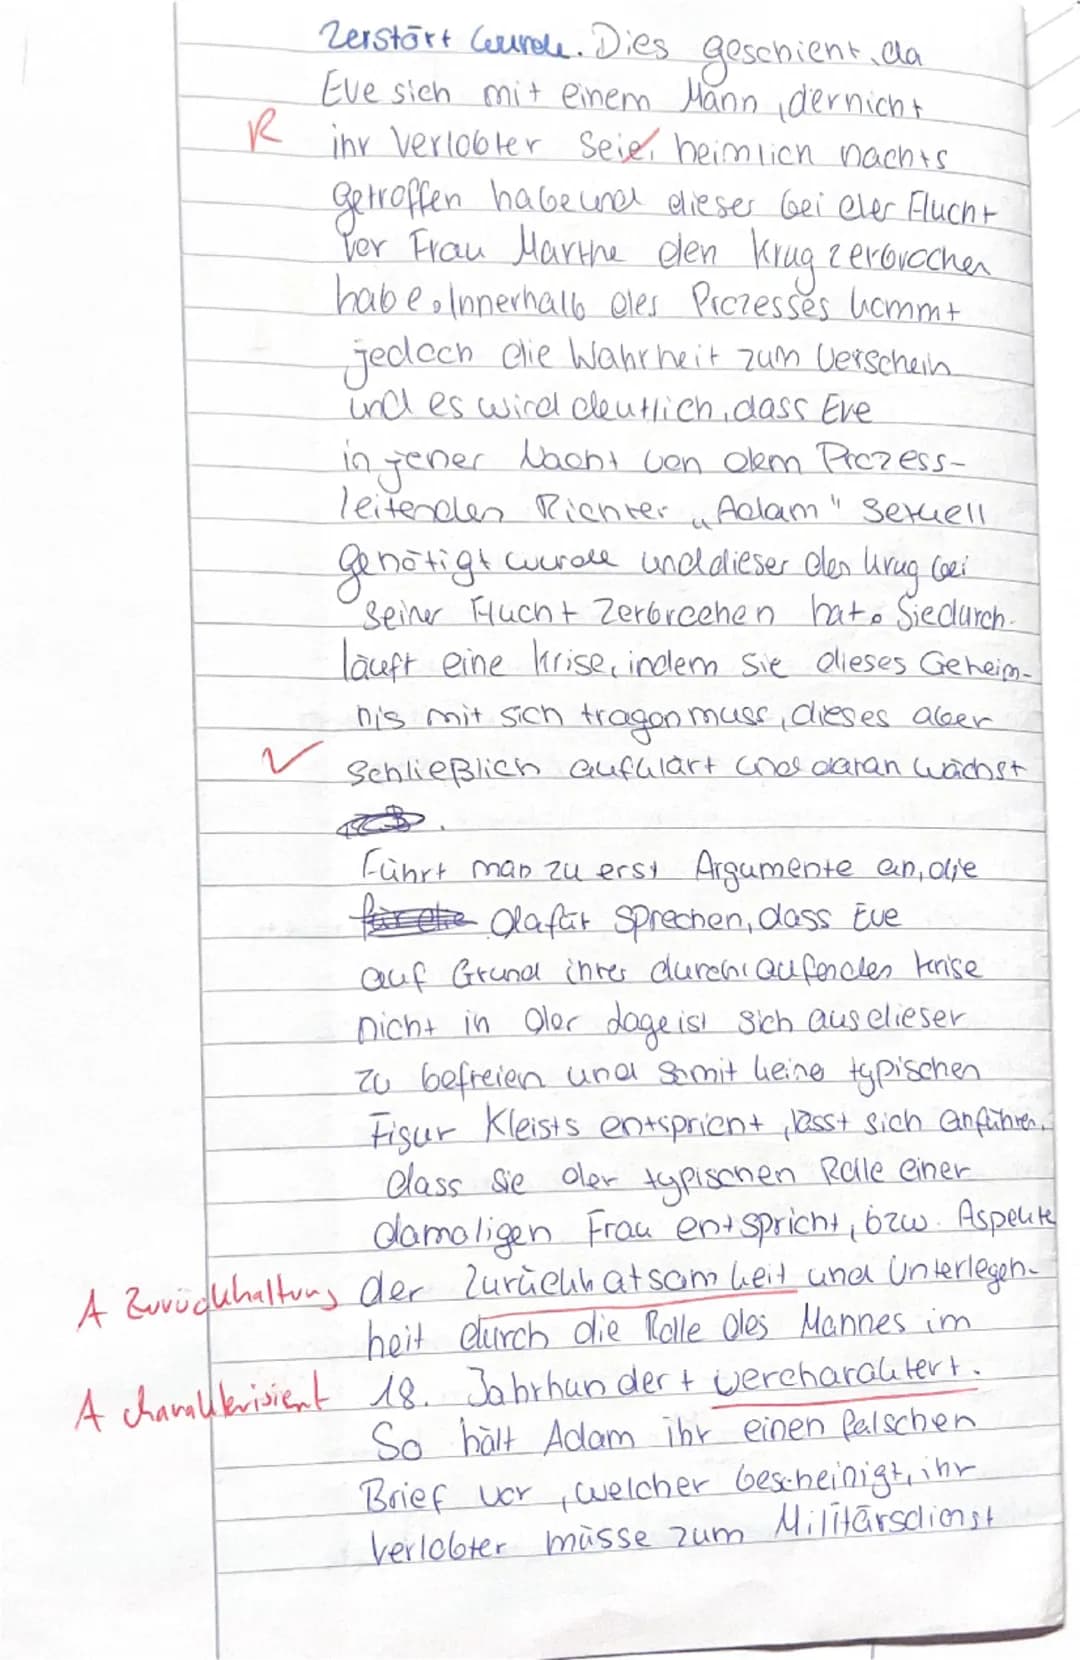 zerstört wurde. Dies geschient, da
Eve sich mit einem Mann, der nicht
R ihr Verlobter seie, heimlich nachts
getroffen habe und dieser bei der Flucht
vor Frau Marthe den Krug zerbrochen
habe. Innerhalb des Prozesses kommt
jedoch die Wahrheit zum Verschein
und es wird deutlich, dass Eve
in jener Nacht von dem Prozess-
leitenden Richter „Adam" sexuell
genötigt wurde und dieser den Krug bei
seiner Flucht zerbrechen hat. Sie durch-
läuft eine Krise, indem sie dieses Geheim-
nis mit sich tragen muss, dieses aber
✓ schließlich aufklärt und daran wächst
.
Führt man zu erst Argumente an, die
für die dafür sprechen, dass Eve
auf Grund ihrer durchlaufenden Krise
nicht in der Lage ist sich aus dieser
zu befreien und somit keine typischen
Figur Kleists entspricht, lässt sich anführen,
dass sie der typischen Rolle einer
damaligen Frau entspricht, bzw. Aspekte
A Zurückhaltung der Zurückhatsamkeit und Unterlegen-
heit durch die Rolle des Mannes im
A charakterisiert 18. Jahrhundert vercharaktert.
So hält Adam ihr einen falschen
Brief vor, welcher bescheinigt, ihr
Verlobter müsse zum Militärsdienst